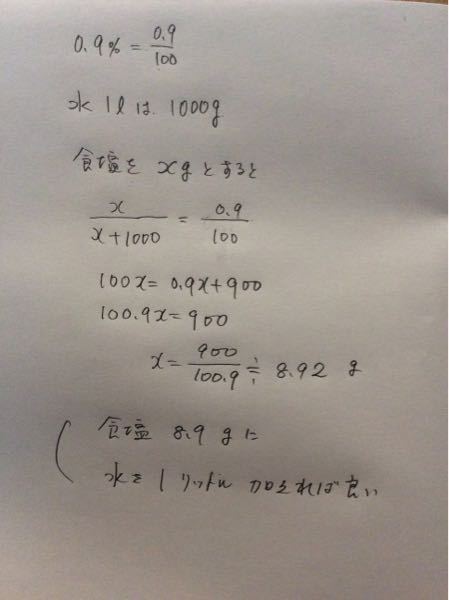 0.9% = 0.9/100
水 1l は 1000g
食塩を xg とすると
x/(x+1000) = 0.9/100
100x = 0.9x+900
100.9x = 900
x = 900/100.9 ≒ 8.92 g
( 食塩 8.9 g に
水を 1 リットル 加えれば良い